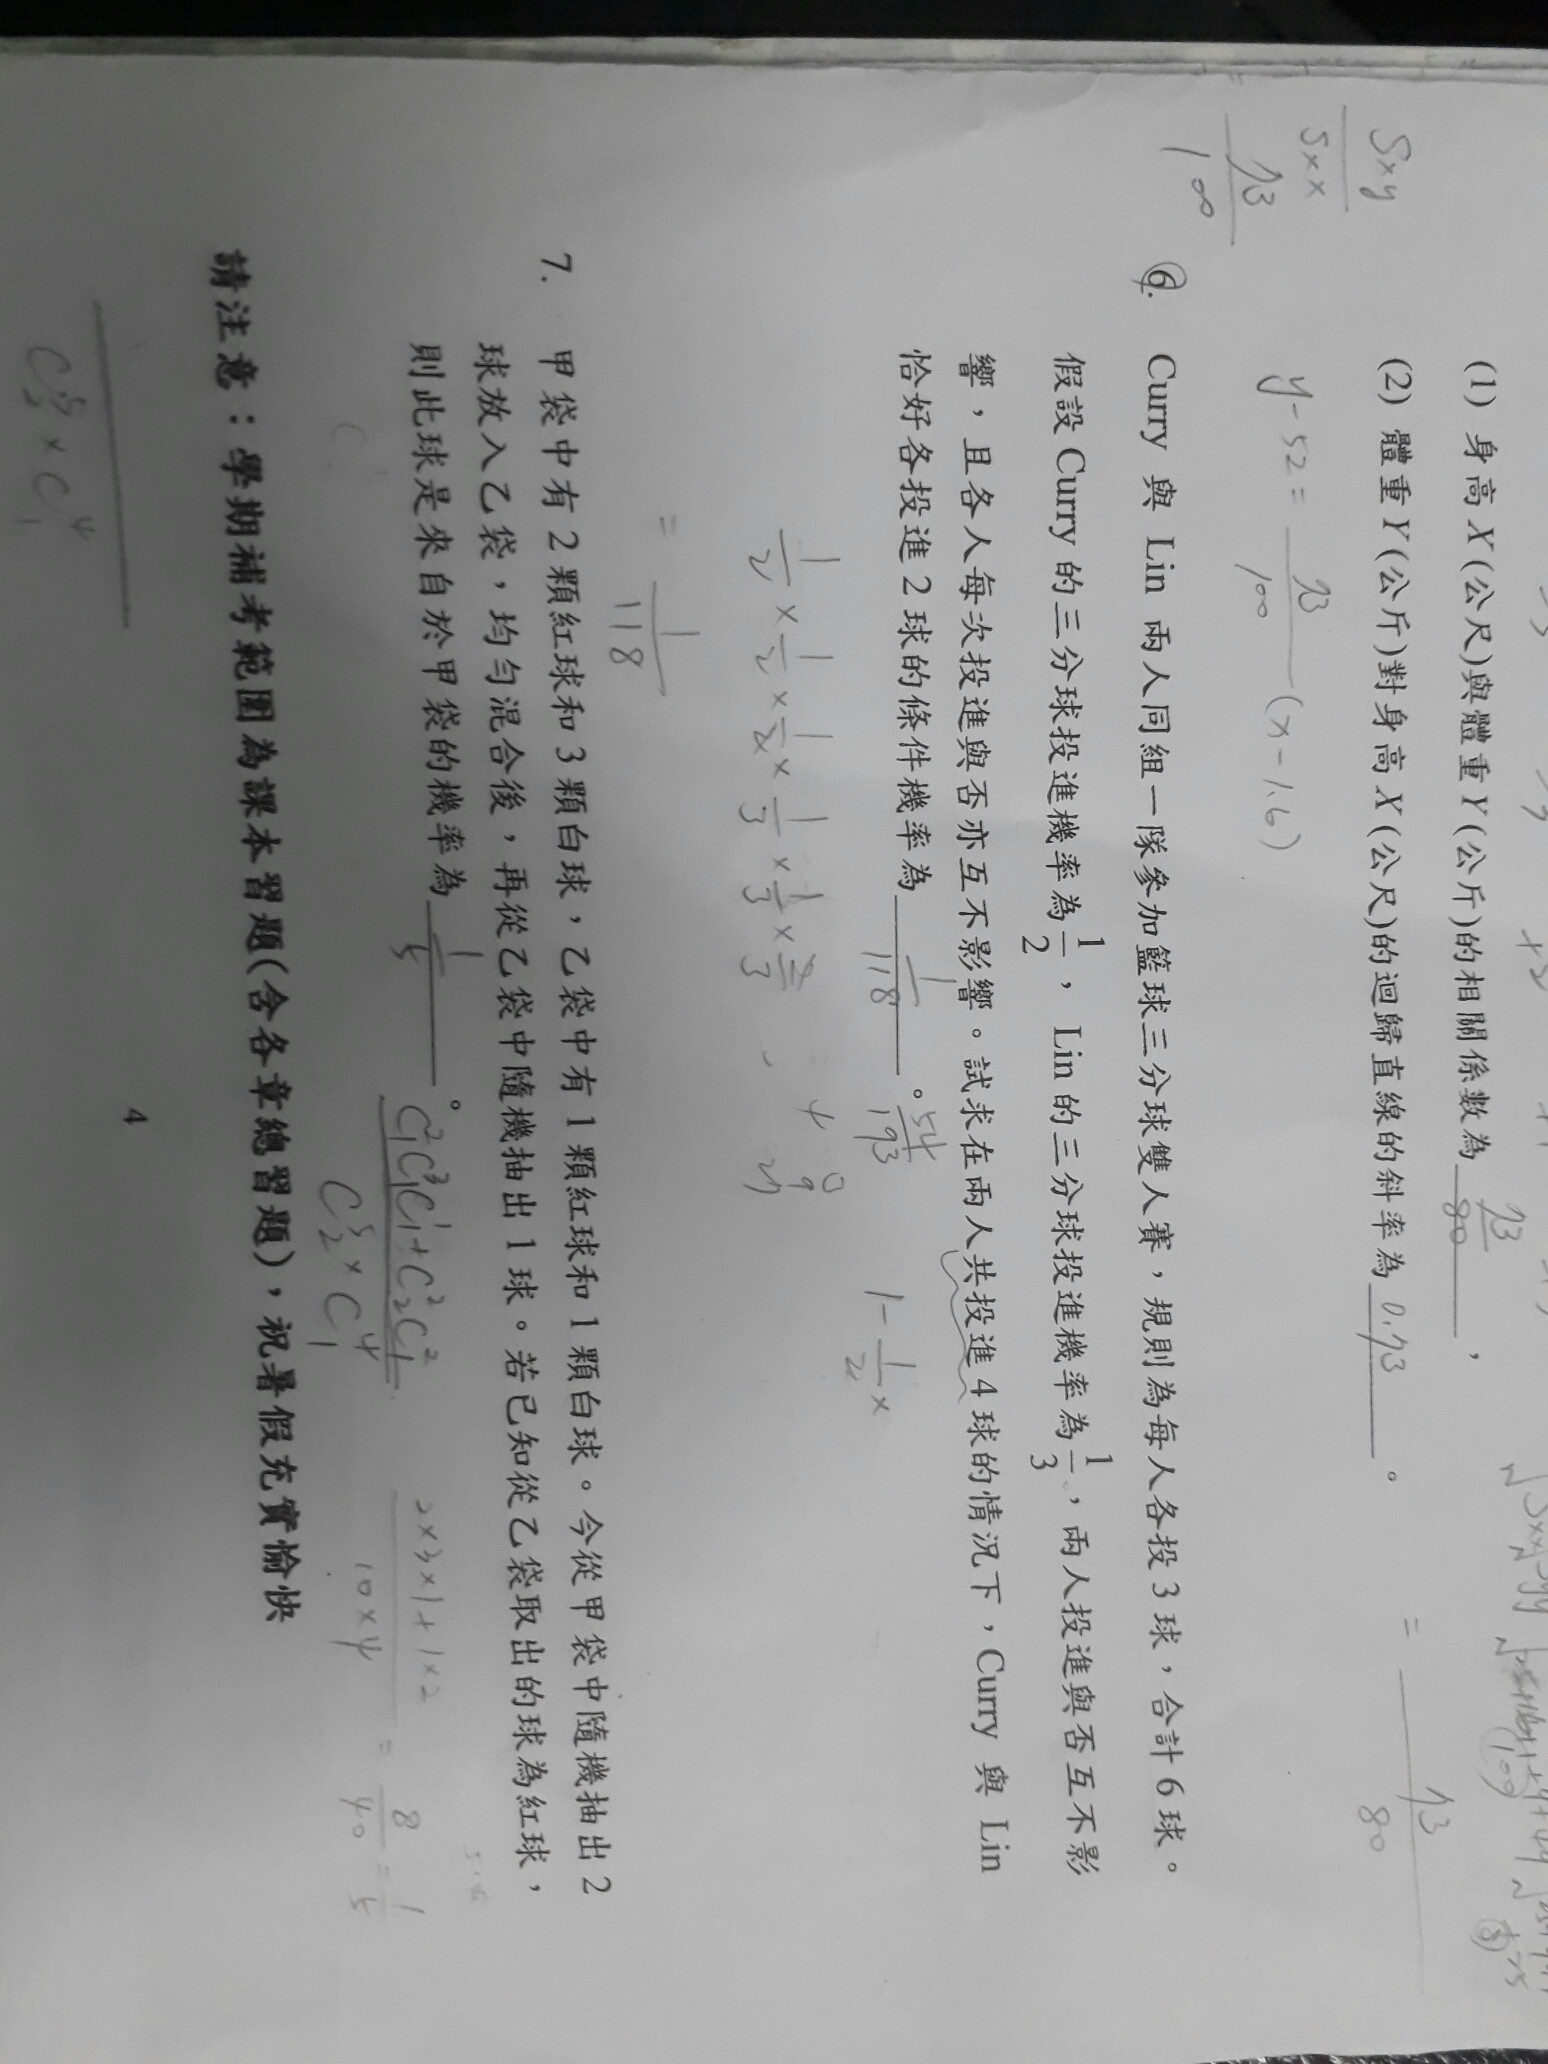 (1) 身高X(公尺)與體重Y(公斤)的相關係數為 93/80 ,
(2) 體重Y(公斤)對身高X(公尺)的迴歸直線的斜率為 0.93 。
= 93/80
Sxy/Sxx
= 93/100
y-52= 93/100 (x-1.6)
6. Curry 與 Lin 兩人同組一隊參加籃球三分球雙人賽，規則為每人各投3球，合計6球。
假設 Curry 的三分球投進機率為1/2，Lin 的三分球投進機率為1/3，兩人投進與否互不影
響，且各人每次投進與否亦互不影響。試求在兩人共投進4球的情況下，Curry 與 Lin
恰好各投進2球的條件機率為 1/118 。
54/193
1-1/2×
1/2×1/2×1/2×1/3×1/3×2/3
= 1/118
7. 甲袋中有2顆紅球和3顆白球，乙袋中有1顆紅球和1顆白球。今從甲袋中隨機抽出2
球放入乙袋，均勻混合後，再從乙袋中隨機抽出1球。若已知從乙袋取出的球為紅球，
則此球是來自於甲袋的機率為 1/5 。
2×3×1+1×2/10×4 = 8/40 = 1/5
請注意：學期補考範圍為課本習題(含各章總習題)，祝暑假充實愉快
4